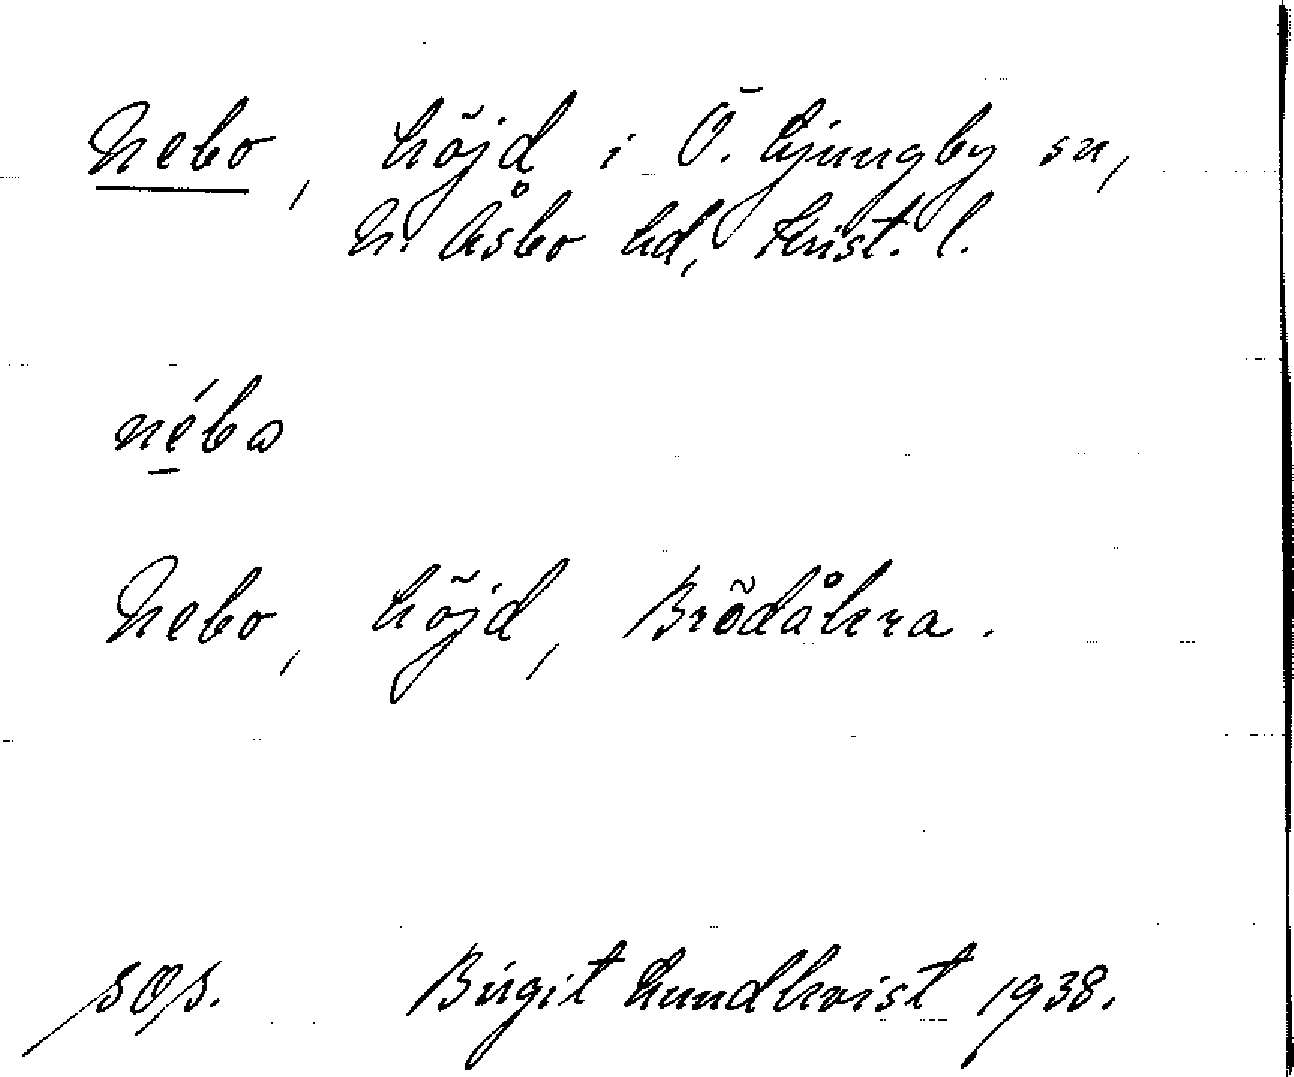 Nebo, höjd i Ö. Ljungby sn,
N. Åsbo hd, Krist. l.
nébo
Nebo, höjd, Brödåkra.
Birgit Lundkvist 1938.